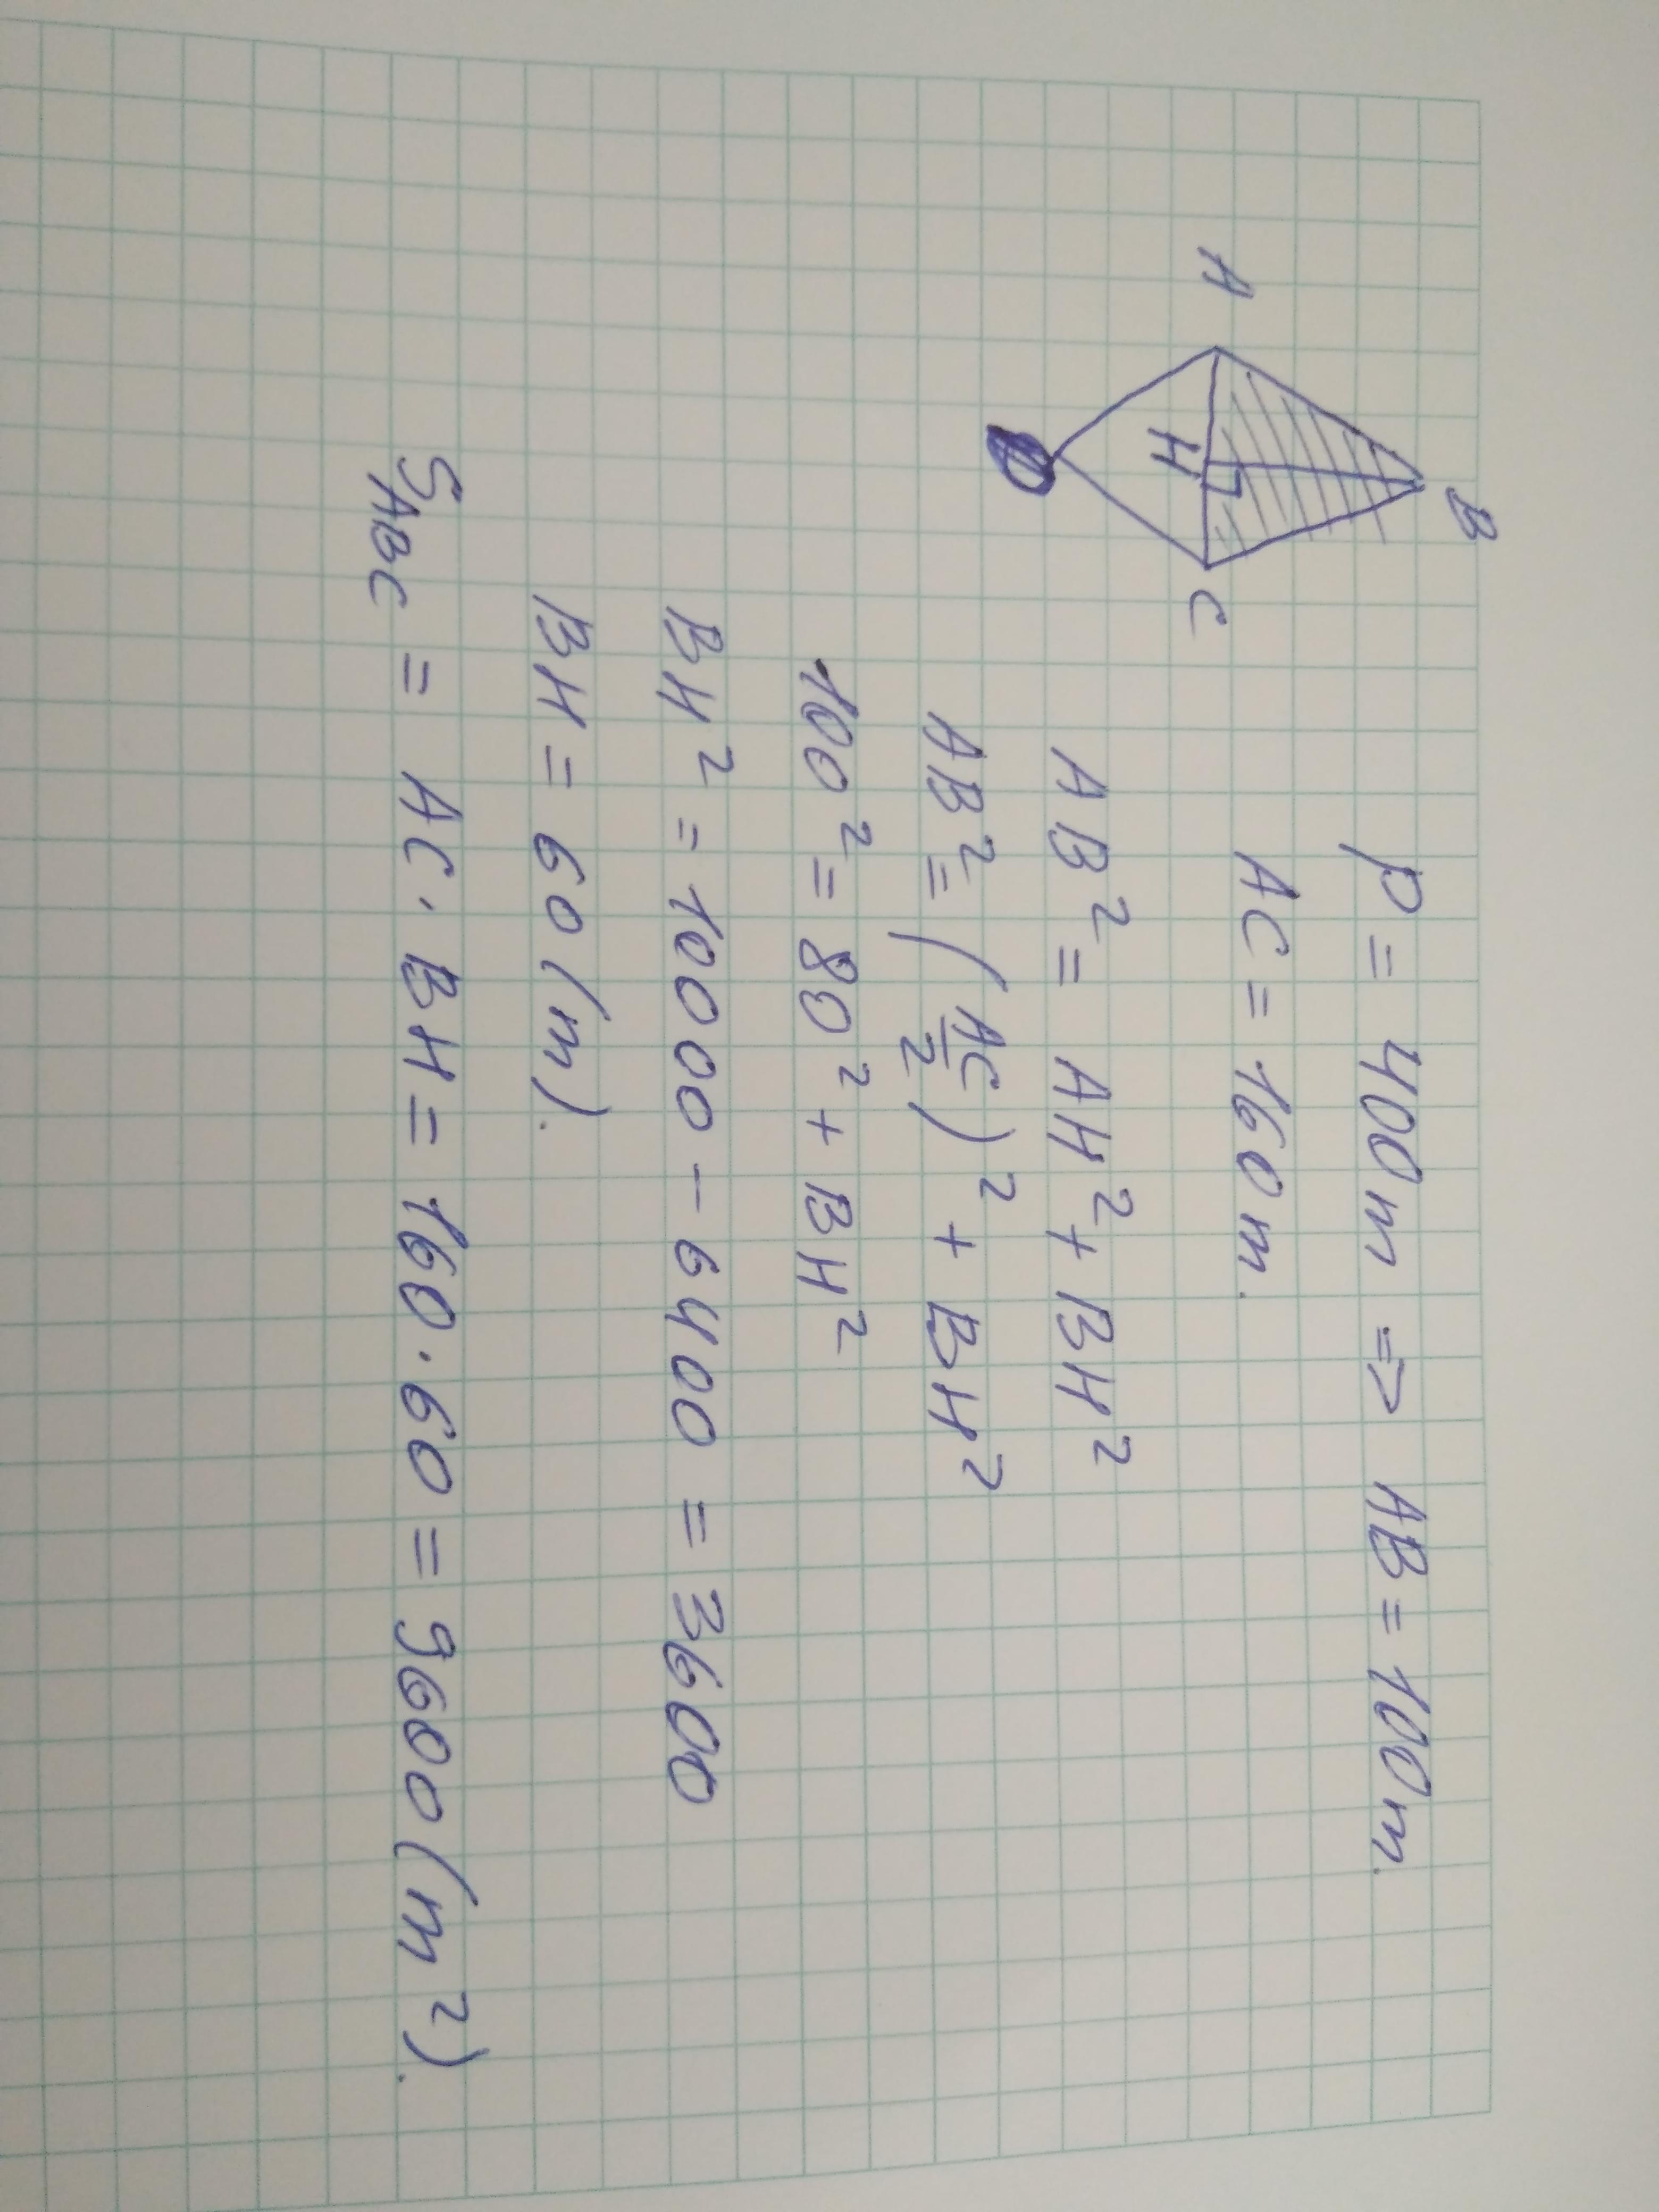 B
A
C
H
P = 400 m => AB = 100 m.
AC = 160 m.
AB² = AH² + BH²
AB² = (AC/2)² + BH²
100² = 80² + BH²
BH² = 10000 - 6400 = 3600
BH = 60 (m).
S_ABC = AC · BH = 160 · 60 = 9600 (m²).